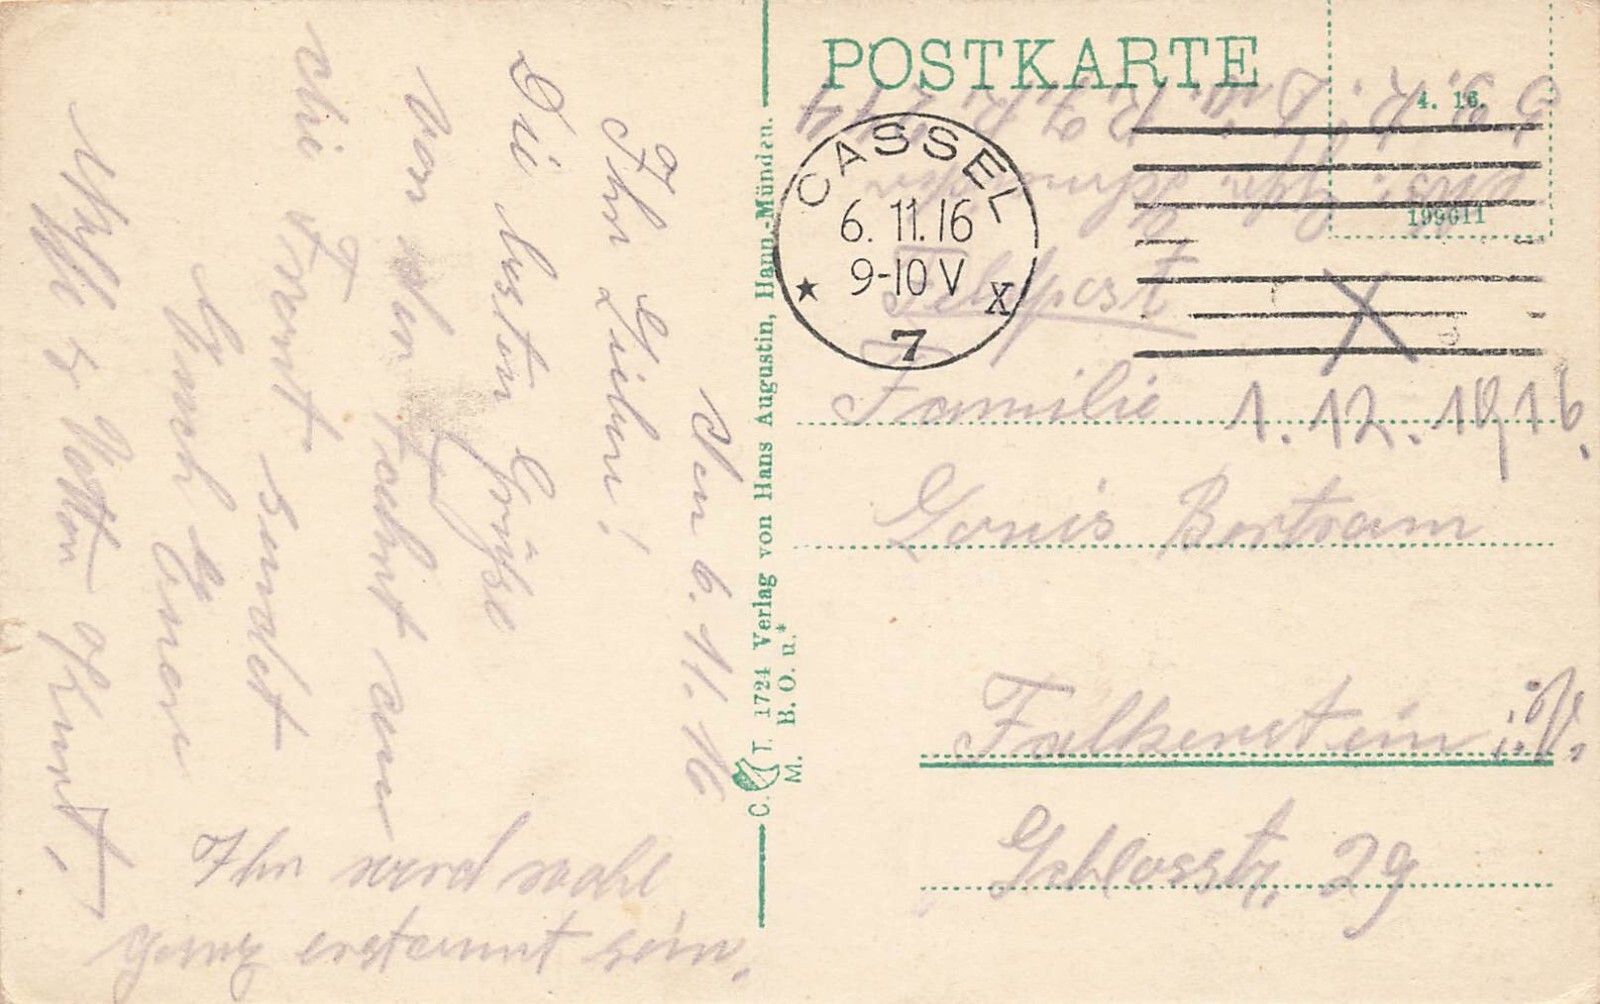 POSTKARTE
4. 16.
199611
CASSEL
6. 11. 16
9-10 V
X
7
Feldpost
Familie
1. 12. 1916.
Louis Bertram
Falkenstein i. V.
Schlosstr. 29
C. T. 1724 Verlag von Hans Augustin, Hann.-Münden.
M. B. O. u.*
den 6. 11. 16
Ihr Lieben!
Die besten Grüße
von der Fahrt an
die Front sendet
Euch
Kurt.
Ihr werd wohl
ganz erstaunt sein.